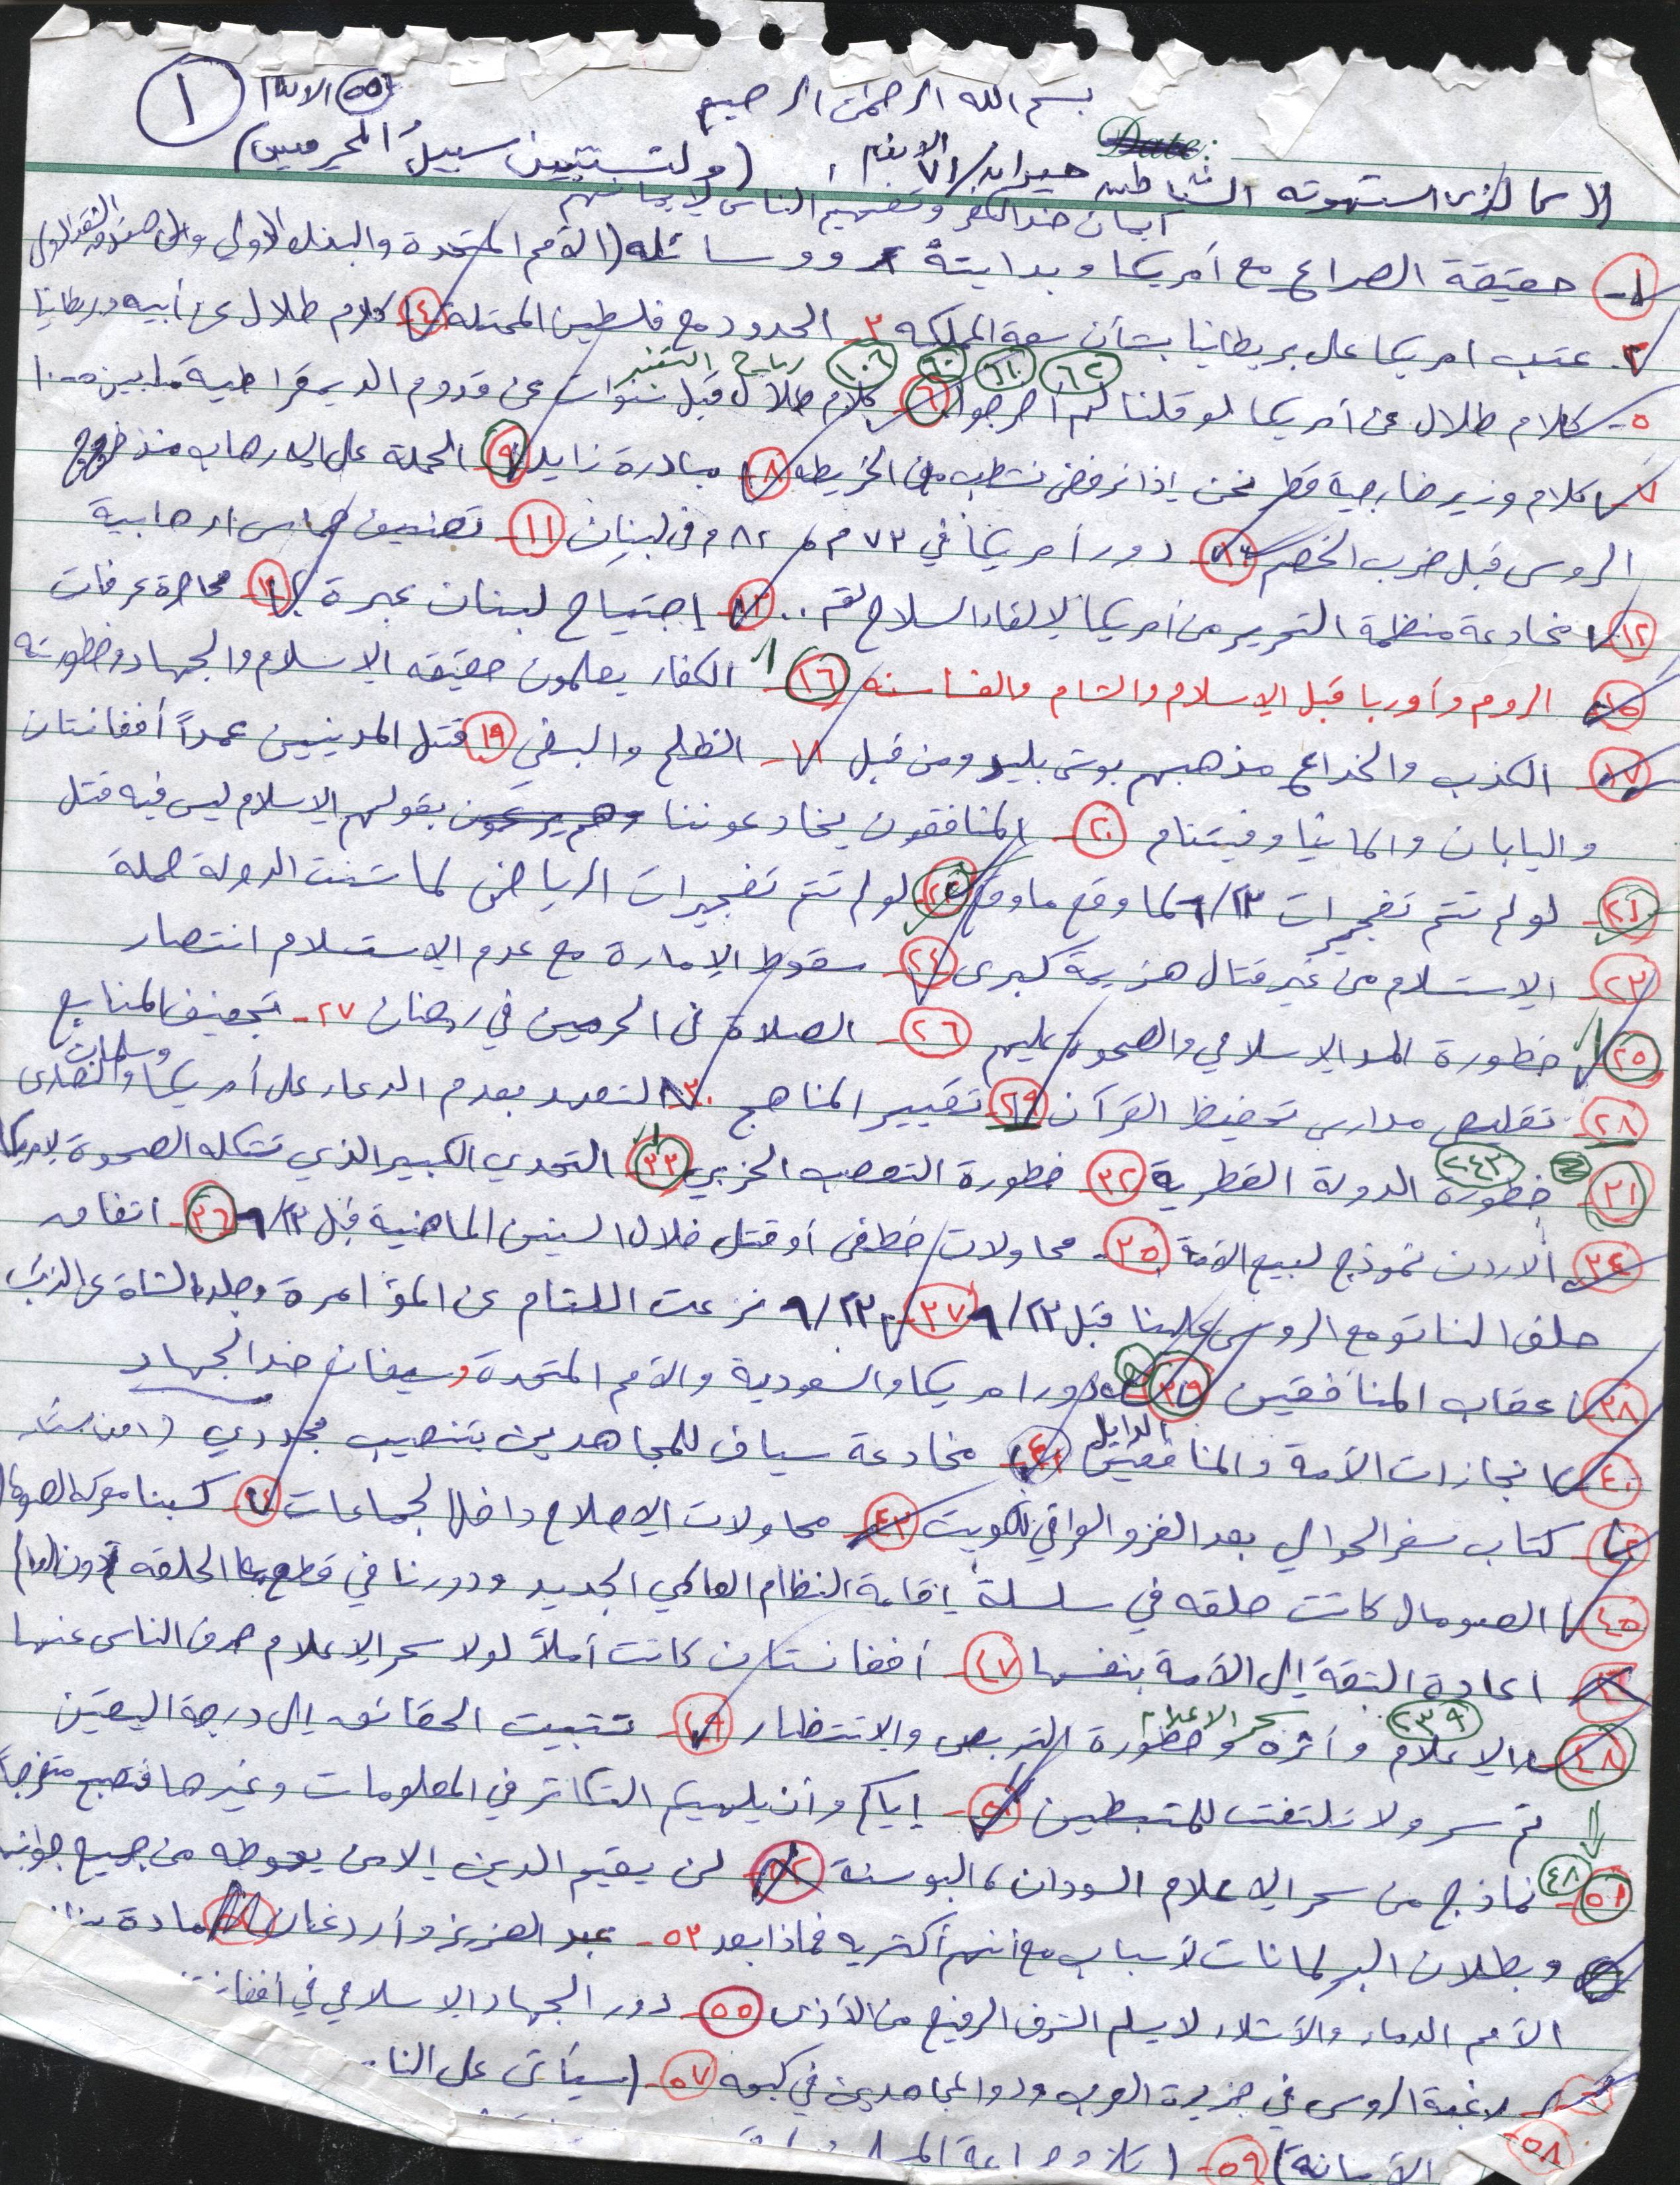 بسم الله الرحمن الرحيم
١ ٥٥ الانعام
Date:
كالذي استهوته الشياطين حيران/٧١ الانعام، (ولتستبين سبيل المجرمين)
١- حقيقة الصراع مع أمريكا وبدايته ووسائله (الأمم المتحدة والبنك الدولي وصندوق النقد الدولي
٢- عتب امريكا على بريطانيا بشأن سعة المملكه ٣- الحدود مع فلسطين المحتلة ٤- كلام طلال عن أبيه وبريطانيا
رياح التغيير ١٠٦ ٦٠ ٦١ ٦٢
٥- كلام طلال عن أمريكا لو قلنا لهم أخرجوا ٦- كلام طلال قبل سنوات عن قدوم الديمقراطية
٧- كلام وزير خارجية قطر نحن إذا نرفض نشطب من الخريطه ٨- مبادرة زايد ٩- الحملة على الإرهاب منذ خروج
الروس قبل ضرب الخصم ١٠- دور أمريكا في ٧٣م و ٨٢م في لبنان ١١- تصنيف حماس ارهابية
١٢- مخادعة منظمة التحرير من أمريكا لإلقاء السلاح ثم .. ١٣- إجتياح لبنان عبرة ١٤- محاصرة عرفات
١٥- الروم وأوربا قبل الاسلام والشام والغساسنه ١٦- الكفار يعلمون حقيقه الاسلام والجهاد وخطورته
١٧- الكذب والخداع مذهبهم بوش بلير ومن قبل ١٨- الظلم والبغي ١٩ قتل المدنيين عمداً أفغانستان
واليابان والمانيا وفيتنام ٢٠- المنافقون يخادعوننا بقولهم الاسلام ليس فيه قتل
٢١- لو لم تتم تفجيرات ٩/٢٣ لما وقع ما وقع ٢٢- لو لم تتم تفجيرات الرياض لما شنت الدولة حملة
٢٣- الاستسلام من غير قتال هزيمة كبرى ٢٤- سقوط الإمارة مع عدم الاستسلام انتصار
٢٥- خطورة المد الاسلامي والصحوة عليهم ٢٦- الصلاة في الحرمين في رمضان ٢٧- تجفيف المنابع
٢٨- تقليص مدارس تحفيظ القرآن ٢٩- تغيير المناهج ٣٠- التعهد بعدم الدعاء على أمريكا والنصارى
٣١- خطورة الدولة القطرية ٢٤٢ ٣٢- خطورة التعصب الحزبي ٣٣- التحدي الكبير الذي تشكله الصحوة لامريكا
٣٤- الاردن نموذج لبيع الأمة ٣٥- محاولات خطفي أو قتلي خلال السنين الماضية قبل ٩/٢٣ ٣٦- اتفاق
حلف الناتو مع الروس علينا قبل ٩/٢٣ ٣٧- ٩/٢٣ نزعت اللثام عن المؤامرة وجلد الشاة عن الذئب
٣٨- عقاب المنافقين ٣٩- دور امريكا والسعودية والأمم المتحدة وسيفان ضد الجهاد
٤٠- انجازات الأمة والمنافقين ٤١- مخادعة سياف للمجاهدين بتنصيب مجددي
٤٢- كتاب سفر الحوالي بعد الغزو العراقي للكويت ٤٣- محاولات الإصلاح داخل الجماعات ٤٤- كسبنا معركه الصومال
٤٥- الصومال كانت حلقه في سلسلة إقامة النظام العالمي الجديد ودورنا في قطع الحلقه
٤٦- اعادة الثقة إلى الأمة بنفسها ٤٧- أفغانستان كانت أملاً لولا سحر الإعلام صرف الناس عنها
٢٣٩ سحر الاعلام
٤٨- الإعلام وأثره وخطورة التربص والانتظار ٤٩- تثبيت الحقائق إلى درجة اليقين
ثم سر ولا تلتفت للمثبطين ٥٠- إياكم وأن يلهيكم التكاثر في المعلومات وغيرها فتصبح متفرجا
٥١- ٤٨ نماذج من سحر الإعلام السودان، البوسنة ٥٢- لن يقيم الدين إلا من يحوطه من جميع جوانبه
وبطلان البرلمانات لأسباب مع أنهم أكثريه فماذا بعد ٥٣- عبد العزيز وأردغان ٥٤- مادة بناء
الأمم الدماء والأشلاء لا يسلم الشرف الرفيع من الأذى ٥٥- دور الجهاد الاسلامي في
٥٦- رغبة الروس في جزيرة العرب ودور المجاهدين في كبحه ٥٧- (سيأتي على
٥٨- الأمانة) ٥٩-